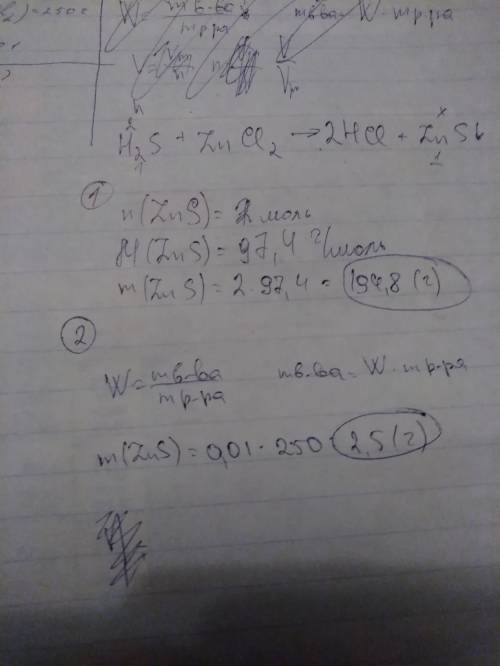 )=250г
W = m в-ва / m р-ра m в-ва = W · m р-ра
V
n
2 x
H₂S + ZnCl₂ → 2HCl + ZnS↓
1 1
①
n(ZnS) = 2 моль
M(ZnS) = 97,4 г/моль
m(ZnS) = 2·97,4 = 197,8 (г)
②
W = m в-ва / m р-ра m в-ва = W · m р-ра
m(ZnS) = 0,01 · 250 = 2,5 (г)